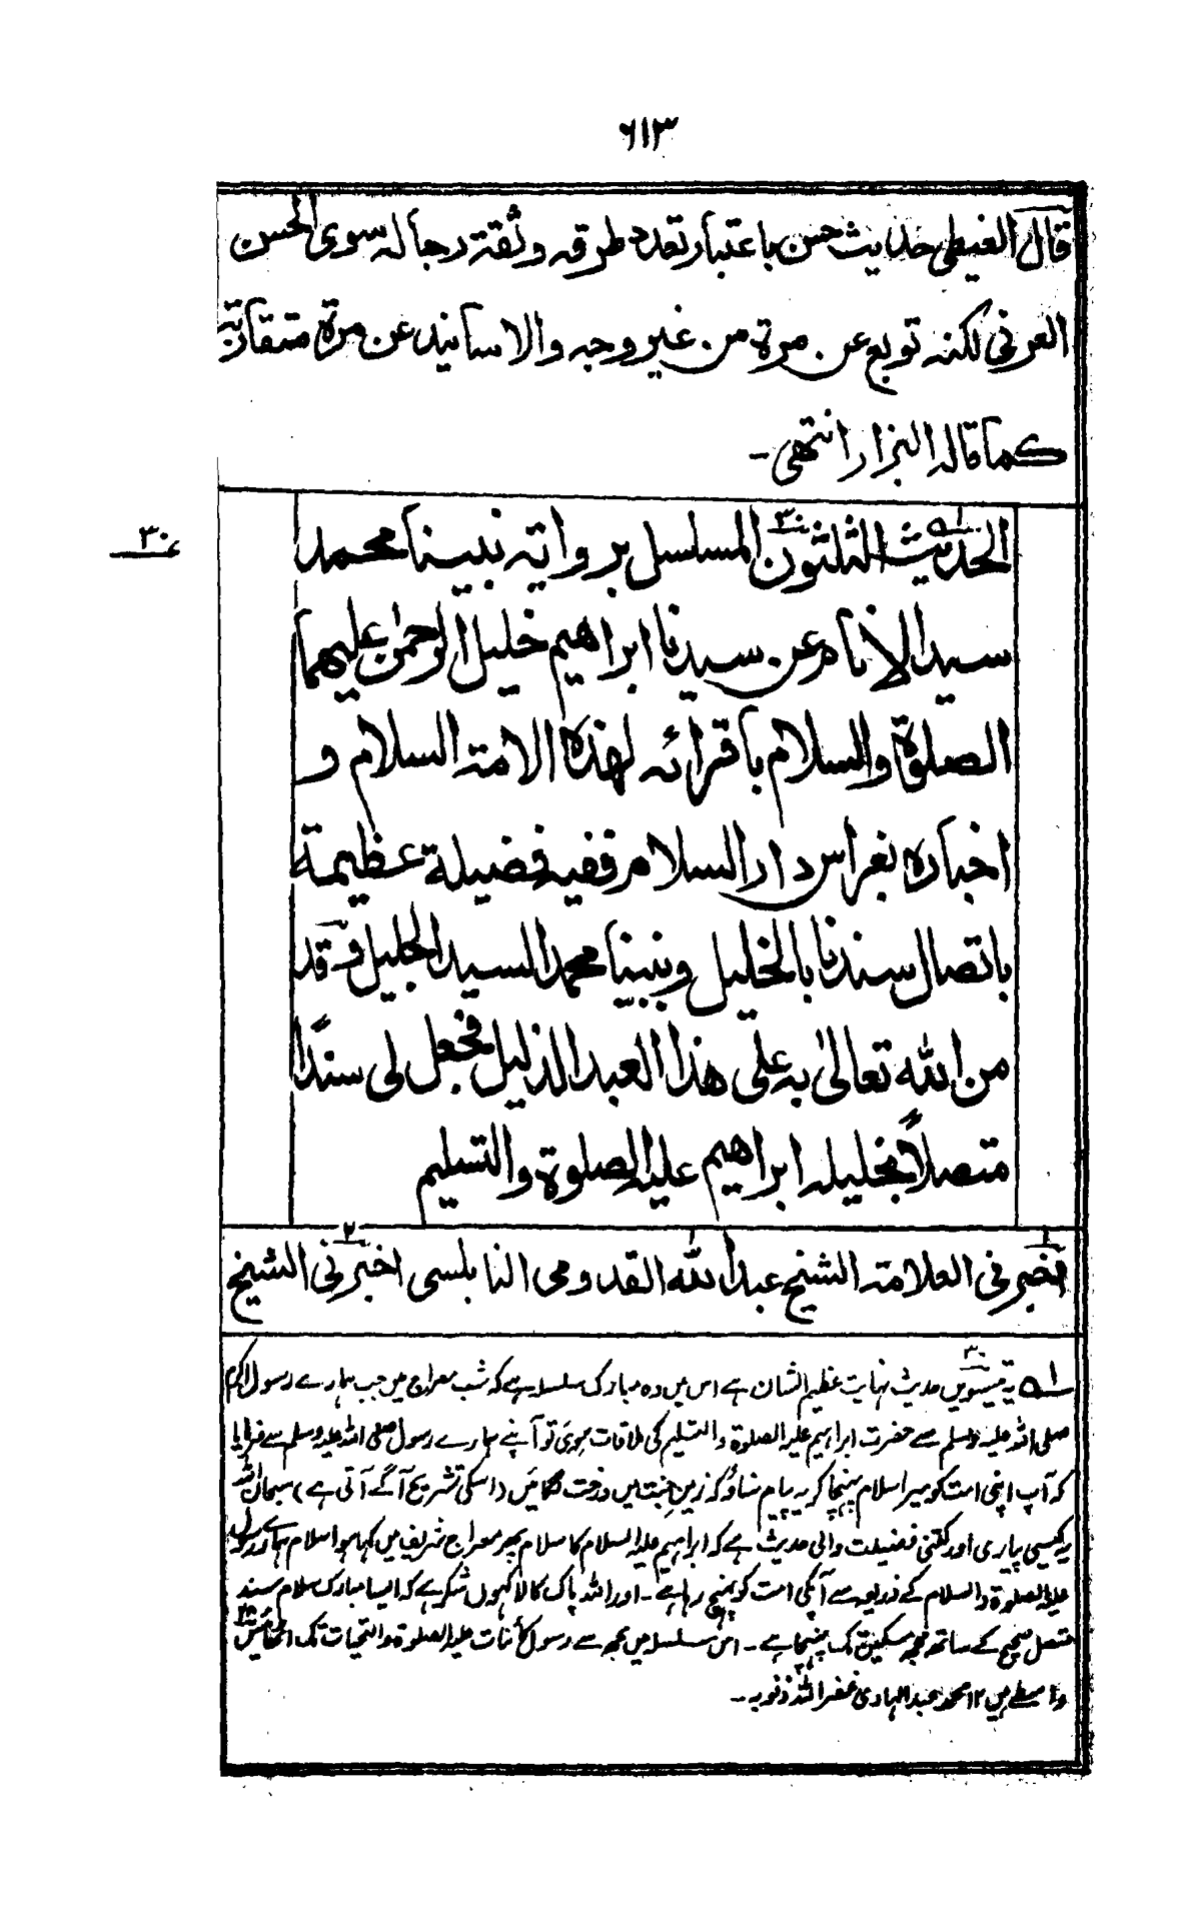 ٦١٣
قال الغيطى حديث حسن باعتبار تعدد طرقه وثقة رجاله سوى الحسن
العرنى لكنه توبع عن مرة من غير وجه والاسانيد عن مرة متقاربة
كما قاله البزار انتهى ـ
٣٠ء
الحديث الثلثون ٣٠ المسلسل برواية نبينا محمد
سيد الانام عن سيدنا ابراهيم خليل الرحمن عليهما
الصلوة والسلام باقرائه لهذه الامة السلام و
اخباره بغراس دار السلام ففيه فضيلة عظيمة
باتصال سندنا بالخليل وبنبينا محمد السيد الجليل وقد
من الله تعالىٰ به على هذا العبد الذليل فجعل لى سندًا
متصلاً بخليله ابراهيم عليه الصلوة والتسليم
العلامة الشيخ عبد الله القدومى النابلسى ٢ اخبرنى الشيخ
١ه یہ تیسویں ٣٠ حدیث نہایت عظیم الشان ہے اس میں وہ مبارک سلسلہ ہے کہ شب معراج میں جب ہمارے رسول اکرم
صلی اللہ علیہ وسلم سے حضرت ابراہیم علیہ الصلوة والتسلیم کی ملاقات ہوئی تو آپنے ہمارے رسول صلی اللہ علیہ وسلم سے فرمایا
کہ آپ اپنی امت کو میرا سلام پہنچا کر یہ پیام سناؤ کہ زمین جنت میں درخت لگائیں (اسکی تشریح آگے آتی ہے) سبحان اللہ
یہ کیسی پیاری اور کتنی فضیلت والی حدیث ہے کہ ابراہیم علیہ السلام کا سلام پھر معراج شریف میں کہا ہوا سلام ہمارے رسول
علیہ الصلوة والسلام کے ذریعہ سے آپکی امت کو پہنچ رہا ہے ۔ اور اللہ پاک کا لاکھوں شکر ہے کہ ایسا مبارک سلام بسند
متصل صحیح کے ساتھ مجھ مسکین تک پہنچا ہے ۔ اس سلسلہ میں مجھ سے رسول کائنات علیہ الصلوة والتحیات تک
واسطے ہیں ١٢ محمد عبد الہادی غفر اللہ ذنوبہ ۔